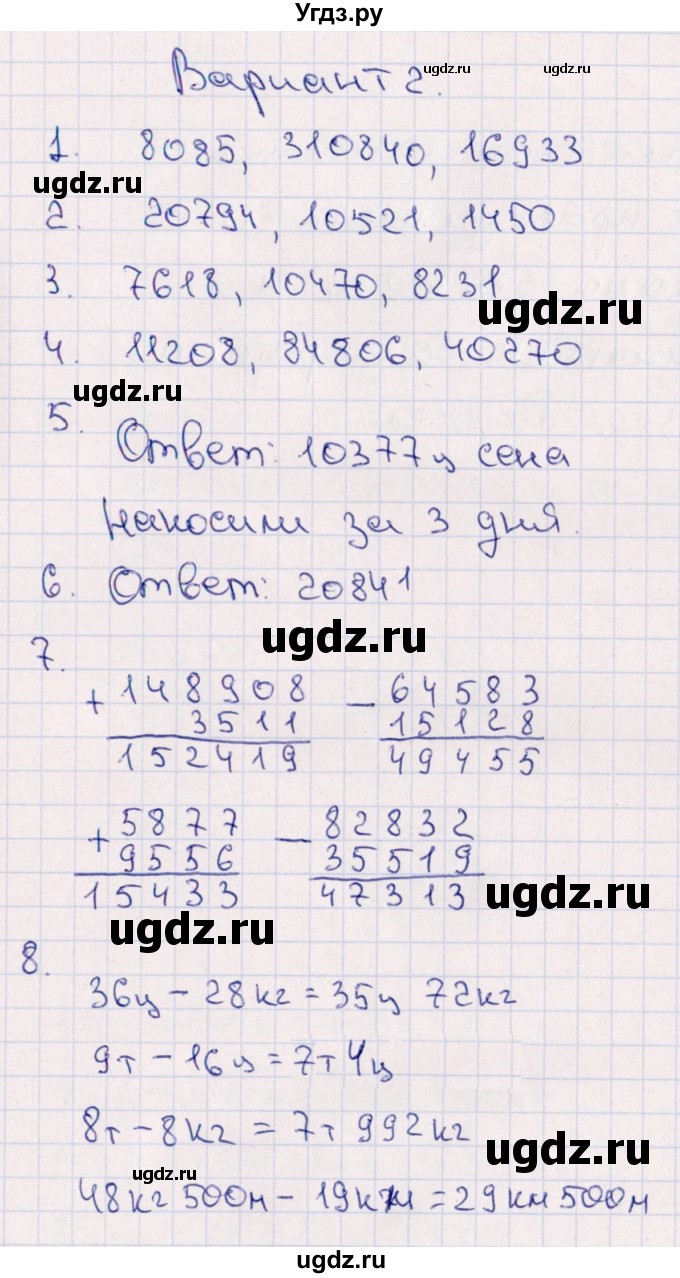 Угдз.ру
Вариант 2.
ugdz.ru ugdz.ru
1. 8085, 310840, 16933
ugdz.ru
2. 20794, 10521, 1450
3. 7618, 10470, 8231
ugdz.ru
4. 11208, 84806, 40270
ugdz.ru
5. Ответ: 10377ц сена
накосили за 3 дня.
6. Ответ: 20841
ugdz.ru
7.
+ 148908 - 64583
3511 15128
152419 49455
+ 5877 - 82832
9556 35519
15433 47313
ugdz.ru
ugdz.ru
8.
36ц - 28кг = 35ц 72кг
9т - 16ц = 7т 4ц
8т - 8кг = 7т 992кг
ugdz.ru
ugdz.ru
48кг 500м - 19км = 29км 500м
ugdz.ru